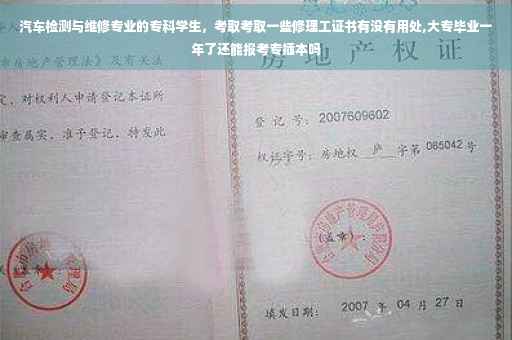 汽车检测与维修专业的专科学生，考取考取一些修理工证书有没有用处,大专毕业一
年了还能报考专插本吗
房地产权证
房地产管理法》及有关
定，对权利人申请登记本证所
审查属实，准予登记，特发此
登记号：2007609602
权证字号：房地权 庐 字第 065042 号
(盖章)：
填发日期： 2007 年 04 月 27 日